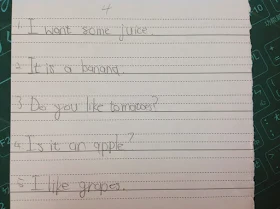 4
1. I want some juice.
2. It is a banana.
3. Do you like tomatoes?
4. Is it an apple?
5. I like grapes.